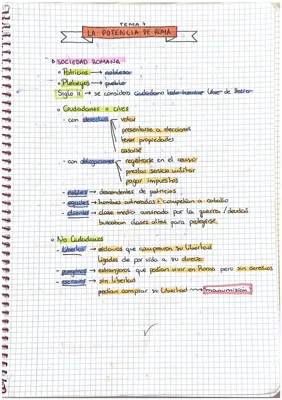 TEMA 7
LA POTENCIA DE ROMA
SOCIEDAD ROMANA
Patricios → nobleza
Plebeyos → pueblo
Siglo II → se considera ciudadano todo hombre libre de
Ciudadanos o cives
- con derechos votar
presentarse a elecciones
tener propiedades
casarse
- con obligaciones registrarse en el censo
prestar servicio militar
pagar impuestos
nobles → descendientes de patricios
equites → hombres adinerados
clientes → clase media arruinada por la guerra / deudas
buscaban clases altas para protegerse
No Ciudadanos
- libertos → esclavos que compraron su libertad
ligados de por vida a su
- peregrinos → extranjeros que podían vivir en Roma pero sin derechos
- esclavos → sin libertad
podían comprar su libertad → manumisión